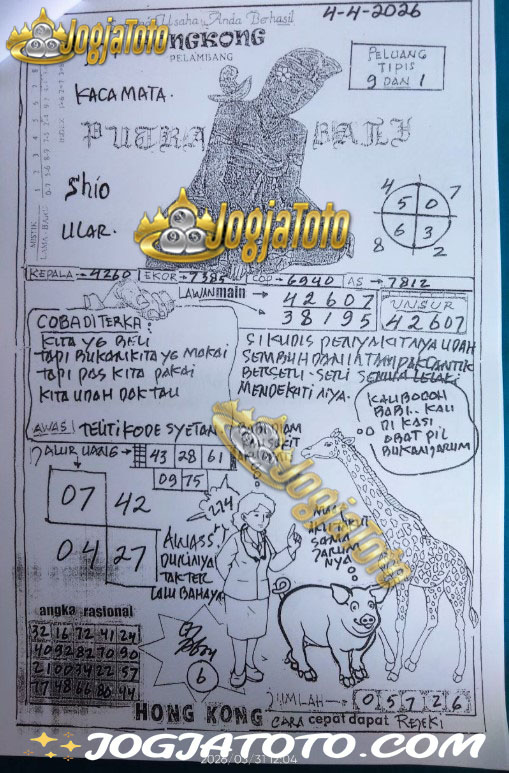 Usaha Anda Berhasil
4-4-2026
JOGJATOTO
NGKONG
PELAMBANG
PELUANG
TIPIS
9 DAN 1
KACAMATA.
PUTRA BALI
Shio
ULAR.
JOGJATOTO
4 7
5 0
6 3
8 2
KEPALA→4260 EKOR→7385 COP→6940 AS→7812
LAWAN main → 42607
→ 38195
UNSUR
42607
COBA DITERKA:
KITA YG BELI
TAPI BUKAN KITA YG MAKAI
TAPI PAS KITA PAKAI
KITA UDAH DAK TAU
SIKUDIS PENYAKITNYA UDAH
MENDEKATI NYA.
KALU BODOH
BABI.. KALI
DI KASI
OBAT PIL
BUKAN JARUM
AWAS!
KODE SYETAN
ALUR UANG→ 43 28 61
09 75
07 42
04 27
224
AWASS
DURINYA
TAK TER
LALU BAHAYA
SAMA
JARUM
NYA
JOGJATOTO
angka rasional
32 16 72 41 24
40 92 82 70 90
21 00 34 22 57
77 48 66 80 44
6
JUMLAH→ 0 5 7 2 6
HONG KONG
CARA cepat dapat REJEKI
JOGJATOTO.COM
2026/03/31 12:04